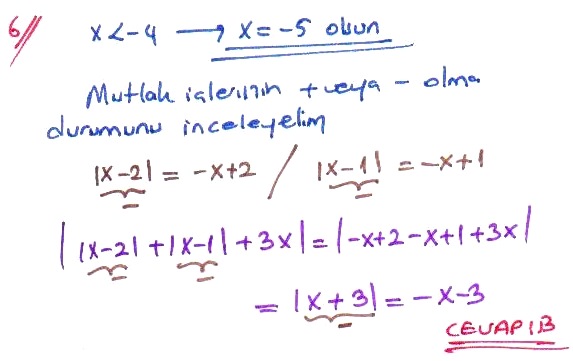 6//
x<-4 → x=-5 olsun
Mutlak içlerinin + veya - olma
durumunu inceleyelim
|x-2| = -x+2 / |x-1| = -x+1
- -
||x-2| + |x-1| + 3x| = |-x+2-x+1+3x|
- -
= |x+3| = -x-3
-
CEVAP:B